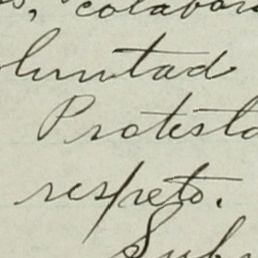 , colabora
oluntad
Protesto
respeto.
Subs